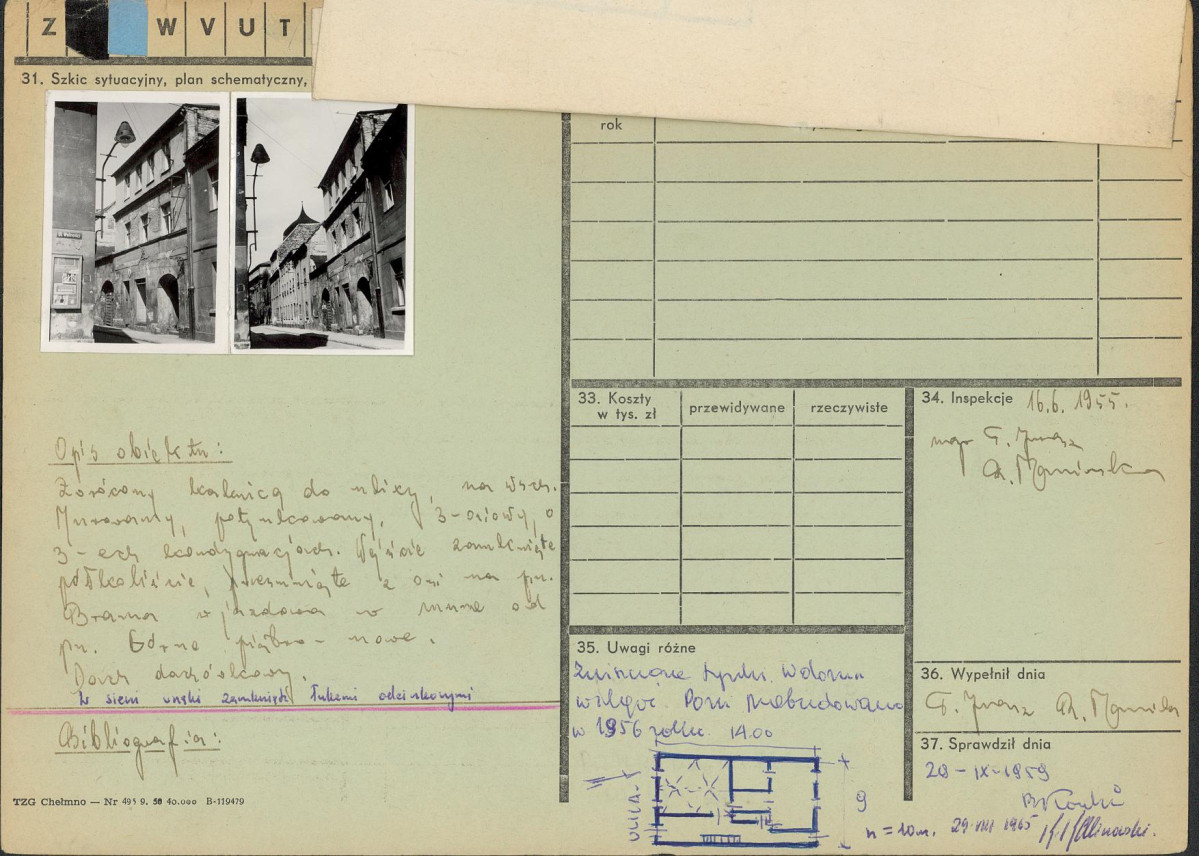 Z W V U T
31. Szkic sytuacyjny, plan schematyczny,
rok
Opis obiektu:
Zwrócony kalenicą do ulicy, na wsch.
Murowany, potynkowany, 3-osiowy, o
3-ech kondygnacjach. Wejście zamknięte
półkoliście, przesunięte z osi na pn.
Brama wjazdowa w murze od
pn. Górne piętro - nowe.
Dach dachówkowy.
W sieni wnęki zamknięte łukami odcinkowymi
Bibliografia:
TZG Chełmno — Nr 493 9. 58 40.000 B-119479
33. Koszty
w tys. zł
przewidywane
rzeczywiste
34. Inspekcje 16.6. 1955.
mgr
35. Uwagi różne
Zniszczone tynki. Widoczna
wilgoć. Dom przebudowano
w 1956 roku.
14.00
ULICA
9
h = 10 m.
36. Wypełnił dnia
37. Sprawdził dnia
28-IX-1959
29 VIII 1965